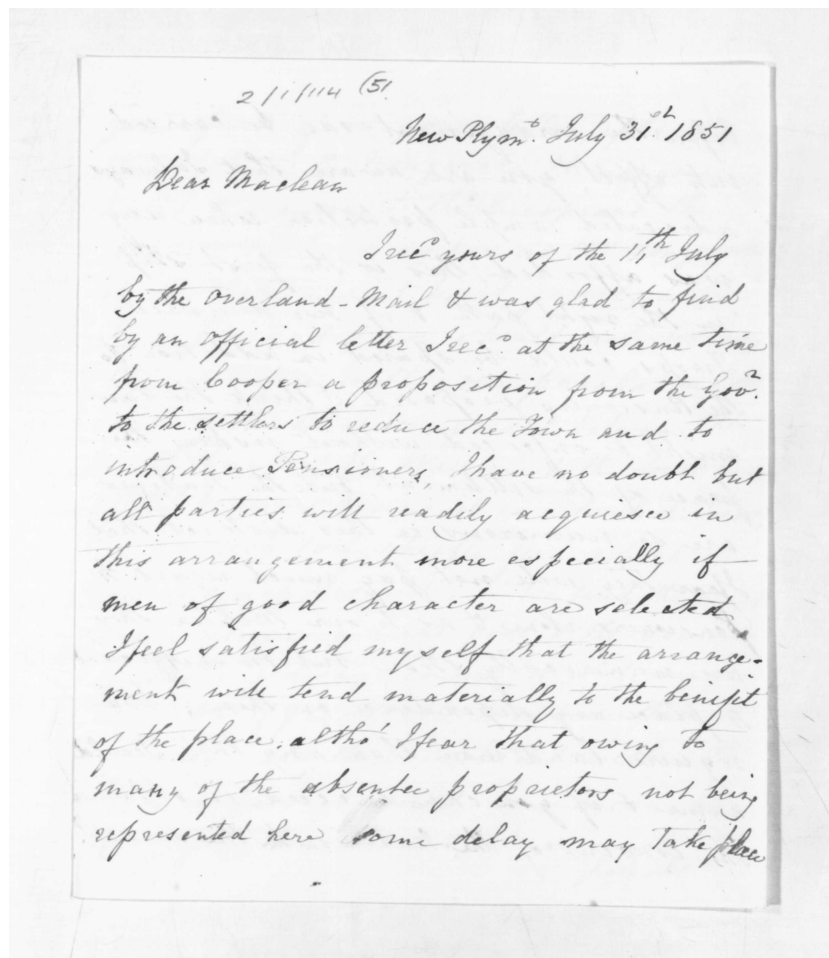 2/1/114 (51
New Plymo. July 31st. 1851
Dear Maclean
I recd yours of the 11th July
by the overland - Mail & was glad to find
by an official letter I recd. at the same time
from Cooper a proposition from the Govr.
to the settlers to reduce the Town and to
introduce Pensioners, I have no doubt but
all parties will readily acquiesce in
this arrangement more especially if
men of good character are selected
I feel satisfied myself that the arrange-
ment will tend materially to the benefit
of the place, altho' I fear that owing to
many of the absentee proprietors not being
represented here some delay may take place